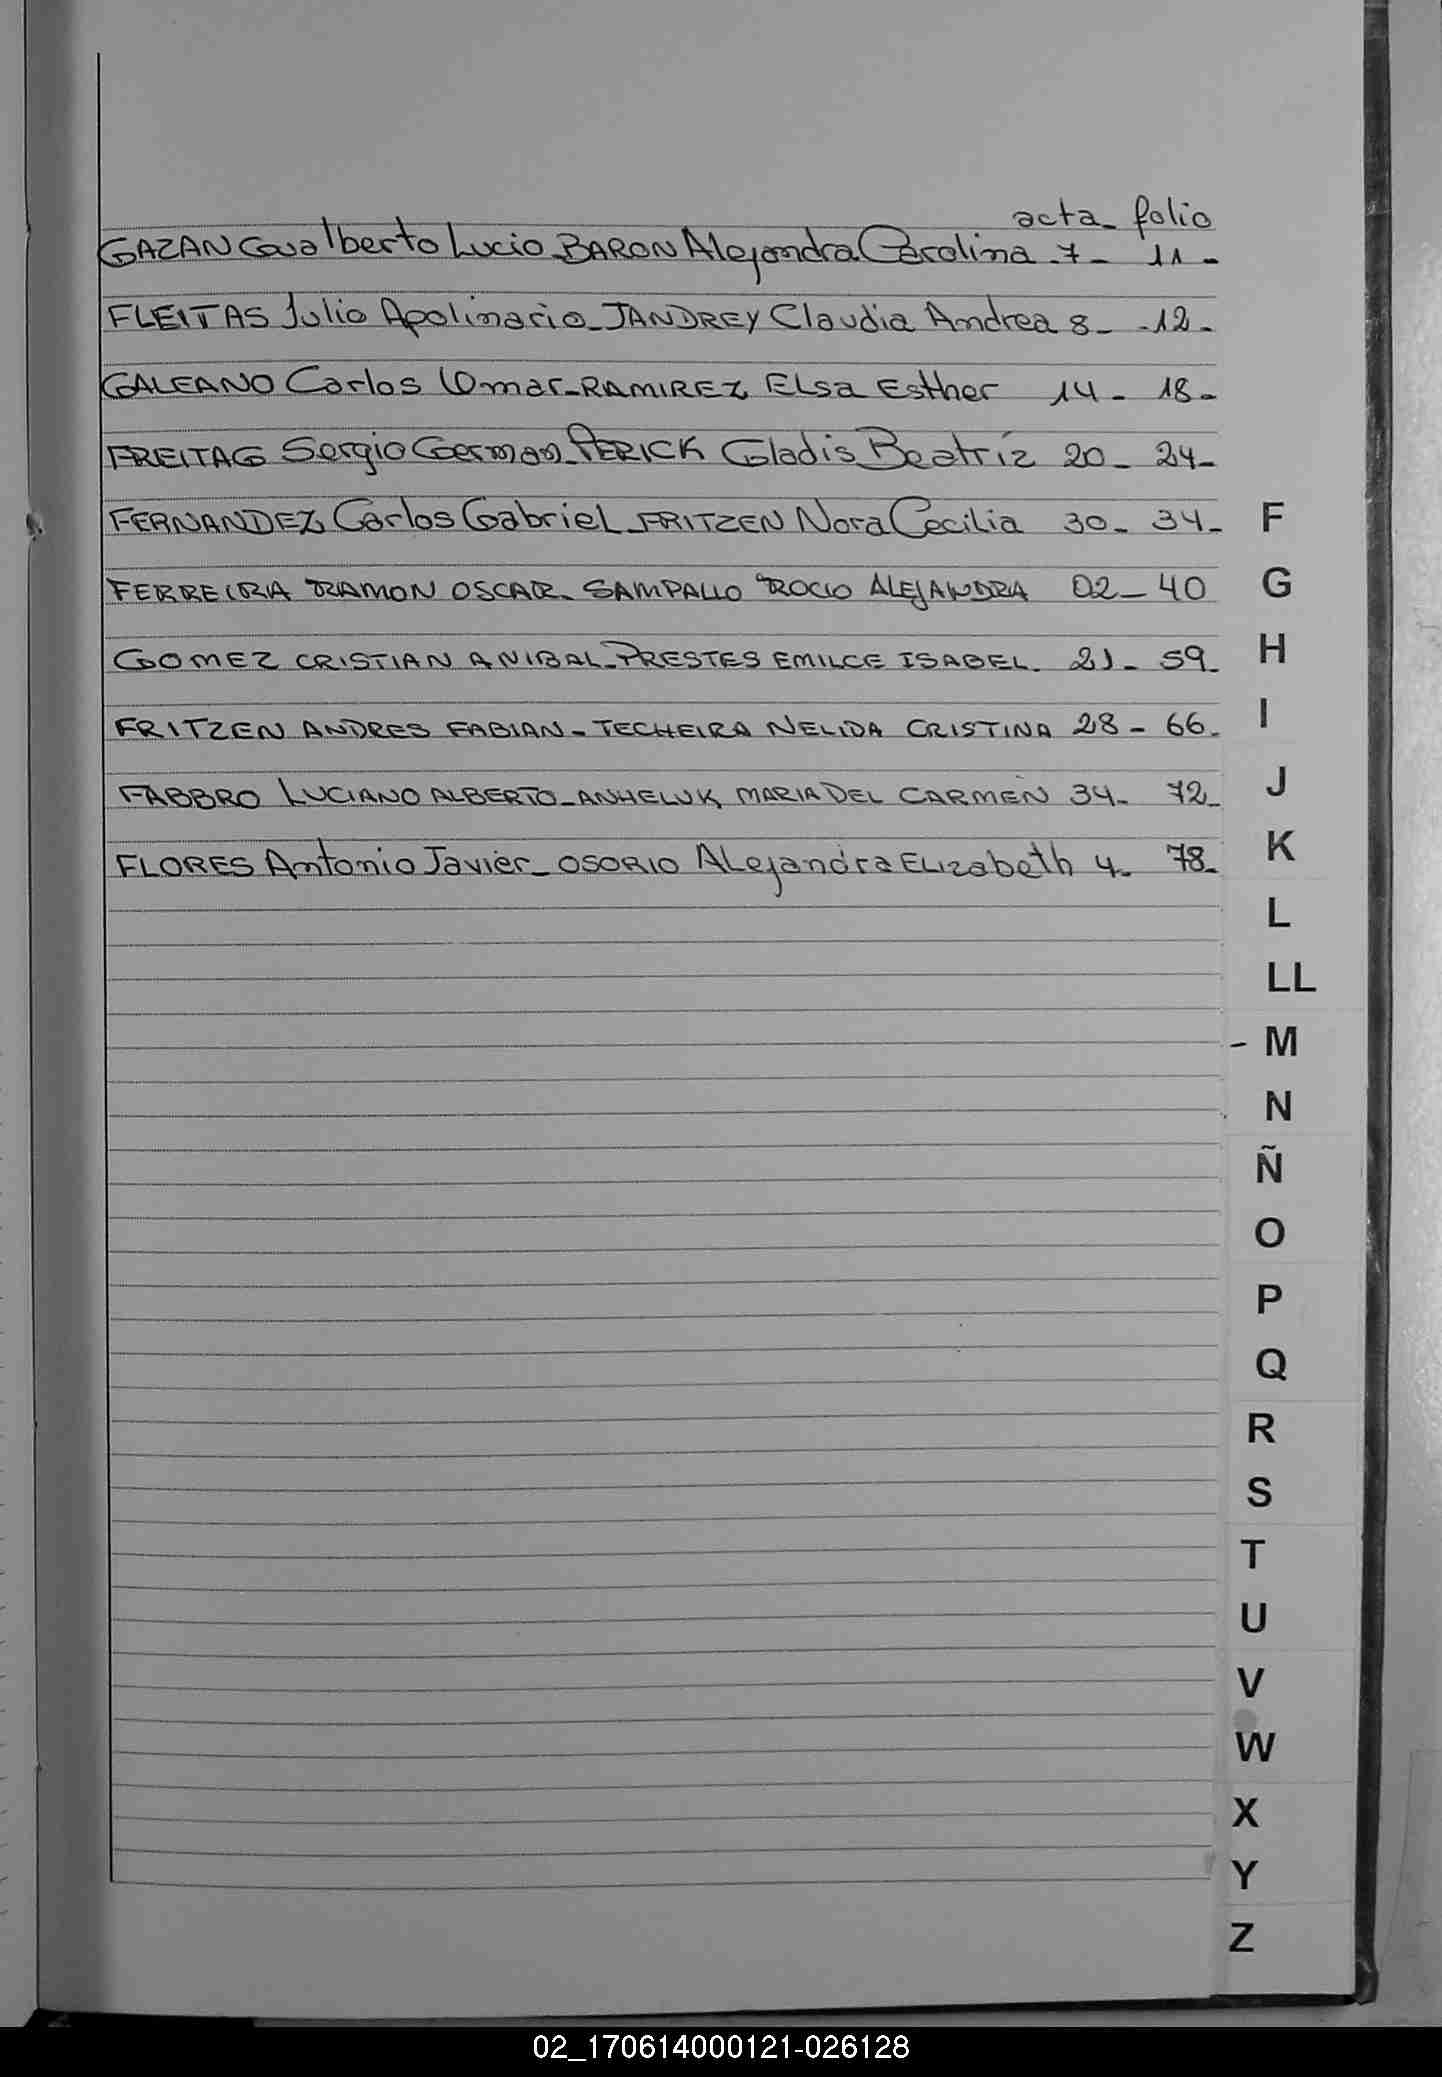 acta - folio
GAZAN Gualberto Lucio - BARON Alejandra Carolina - 7 - 11 -
FLEITAS Julio Apolinario - JANDREY Claudia Andrea 8 - - 12 -
GALEANO Carlos Omar - RAMIREZ ELSa Esther 14 - 18 -
FREITAG Sergio German - PERICK Gladis Beatríz 20 - 24 -
FERNANDEZ Carlos GabrieL - FRITZEN Nora Cecilia 30 - 34 -
FERREIRA RAMON OSCAR - SAMPALLO ROCIO ALEJANDRA 02 - 40
GOMEZ CRISTIAN ANIBAL - PRESTES EMILCE ISABEL. 21 - 59 -
FRITZEN ANDRES FABIAN - TECHEIRA NELIDA CRISTINA 28 - 66 -
FABBRO LUCIANO ALBERTO - ANHELUK MARIA DEL CARMEN 34 - 72 -
FLORES Antonio Javier - OSORIO ALejandra ELizabeth 4 - 78 -
F
G
H
I
J
K
L
LL
- M
N
Ñ
O
P
Q
R
S
T
U
V
W
X
Y
Z
02_170614000121-026128